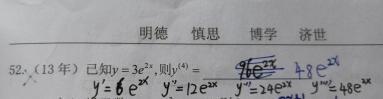 明德 慎思 博学 济世
52.（13年）已知y=3e^{2x},则y^{(4)}= 48e^{2x}
y'=6e^{2x} y''=12e^{2x} y'''=24e^{2x} y''''=48e^{2x}